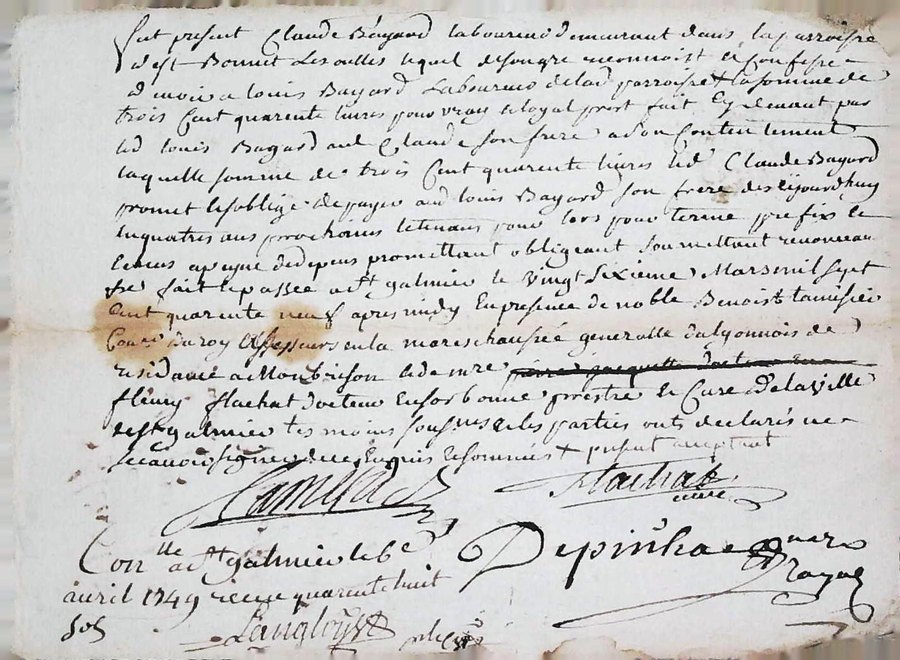 fut present Claude Bayard laboureur demeurant dans la parroisse
de st Bonnet Les oulles lequel de son gre reconnoist et Confesse
devoir a louis Bayard Laboureur de lad parroisse + la somme de
trois Cent quarente livres pour vray et loyal prest fait Cy devant par
led louis Bayard aud Claude son frere a son Contentement
laquelle somme de trois Cent quarente livres led Claude Bayard
promet et soblige de payer aud louis Bayard son frere des Cejourdhuy
en quatres ans prochains et tenans pour lors pour terme prefix et
a peyne de depens promettant obligeant soumettant renonceant
fait et passé a st galmier le vingt sixieme Mars mil sept
Cent quarente neuf apres midy En presence de noble Benoist
Coner du roy assesseurs en la mareschaussée generalle du lyonnois de
residance a Montbrison et de mre
fleury flachat docteur En sorbonne prestre et Curé de la ville
de st galmier tesmoins soussignes et les parties onts declarés ne
scavoir signer de ce Enquis et sommés + present acceptant
flachat
curé
Depinha nore
Royal
Conlle a st galmier le 6e
avril 1749 recu quarente huit
sols
Langloys